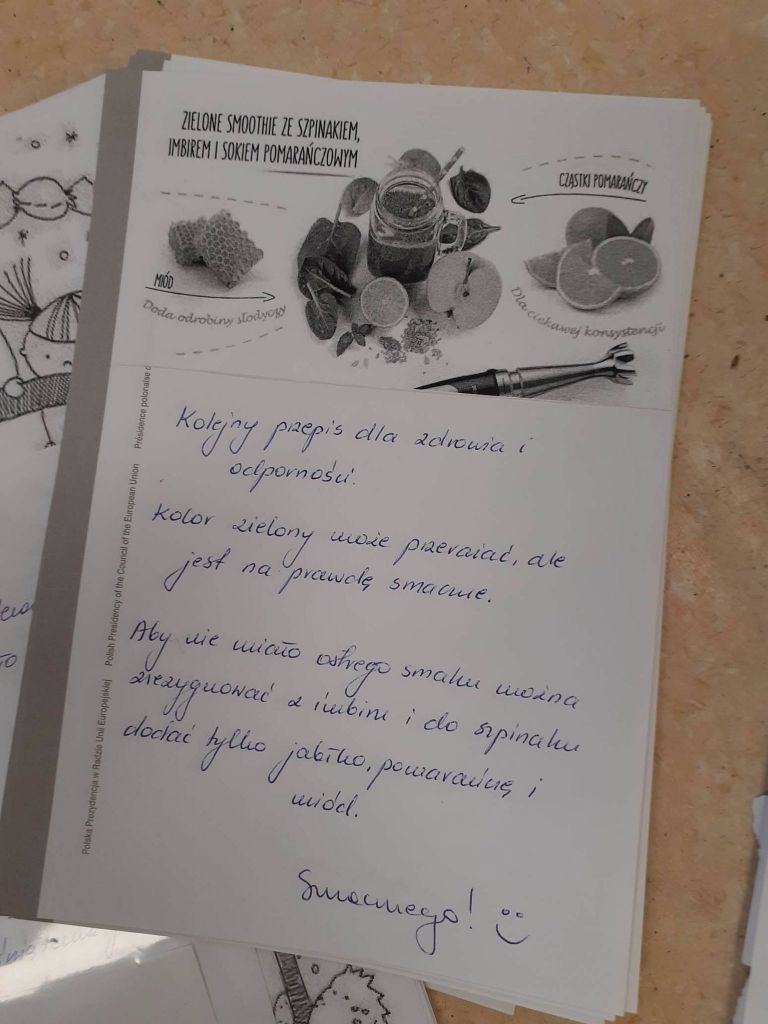 ZIELONE SMOOTHIE ZE SZPINAKIEM,
IMBIREM I SOKIEM POMARAŃCZOWYM
CZĄSTKI POMARAŃCZY
MIÓD
Doda odrobiny słodyczy
Dla ciekawej konsystencji
Kolejny przepis dla zdrowia i
odporności.
Kolor zielony może przerażać, ale
jest na prawdę smaczne.
Aby nie miało ostrego smaku można
zrezygnować z imbiru i do szpinaku
dodać tylko jabłko, pomarańczę i
miód.
Smacznego!
Polska Prezydencja w Radzie Unii Europejskiej Polish Presidency of the Council of the European Union Présidence polonaise